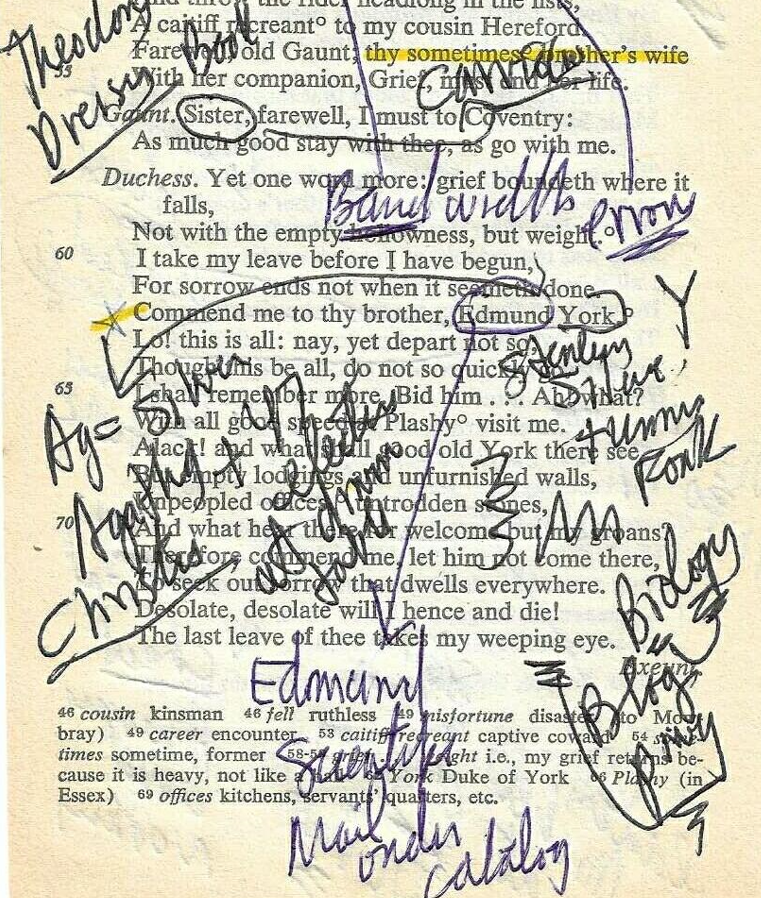 and throw the rider headlong in the lists,
A caitiff recreant° to my cousin Hereford.
Farewell, old Gaunt; thy sometimes brother's wife
55
With her companion, Grief, must end her life.
Gaunt. Sister, farewell, I must to Coventry:
As much good stay with thee, as go with me.
Duchess. Yet one word more: grief boundeth where it
falls,
Not with the empty hollowness, but weight.°
60
I take my leave before I have begun,
For sorrow ends not when it seemeth done.
Commend me to thy brother, Edmund York.°
Lo! this is all: nay, yet depart not so,
Though this be all, do not so quickly go.
65
I shall remember more. Bid him . . . Ah, what?
With all good speed at Plashy° visit me.
Alack! and what shall good old York there see
But empty lodgings and unfurnished walls,
Unpeopled offices,° untrodden stones,
70
And what hear there for welcome but my groans?
Therefore commend me, let him not come there,
To seek out sorrow that dwells everywhere.
Desolate, desolate will I hence and die!
The last leave of thee takes my weeping eye.
Exeunt.
46 cousin kinsman 46 fell ruthless 49 misfortune disaster to Mow-
bray) 49 career encounter 53 caitiff recreant captive coward 54 some-
times sometime, former 58-59 grief weight i.e., my grief returns be-
cause it is heavy, not like a York Duke of York 66 Plashy (in
Essex) 69 offices kitchens, servants' quarters, etc.
Theodore
Book
Bandwidth
errors
Ag= Silver
Agatha
Christie
at
Steve
Y
Biology
Blog
Edmund
Scientific
Mail
order
catalog